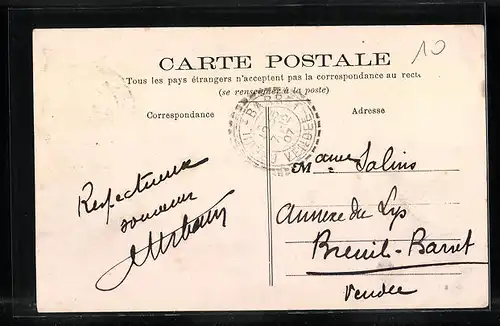 10
CARTE POSTALE
Tous les pays étrangers n'acceptent pas la correspondance au recto
(se renseigner à la poste)
Correspondance
Adresse
VENDEE
Respectueux
souvenir
Mame Salins
Annexe du Lys
Breuil-Barret
Vendée